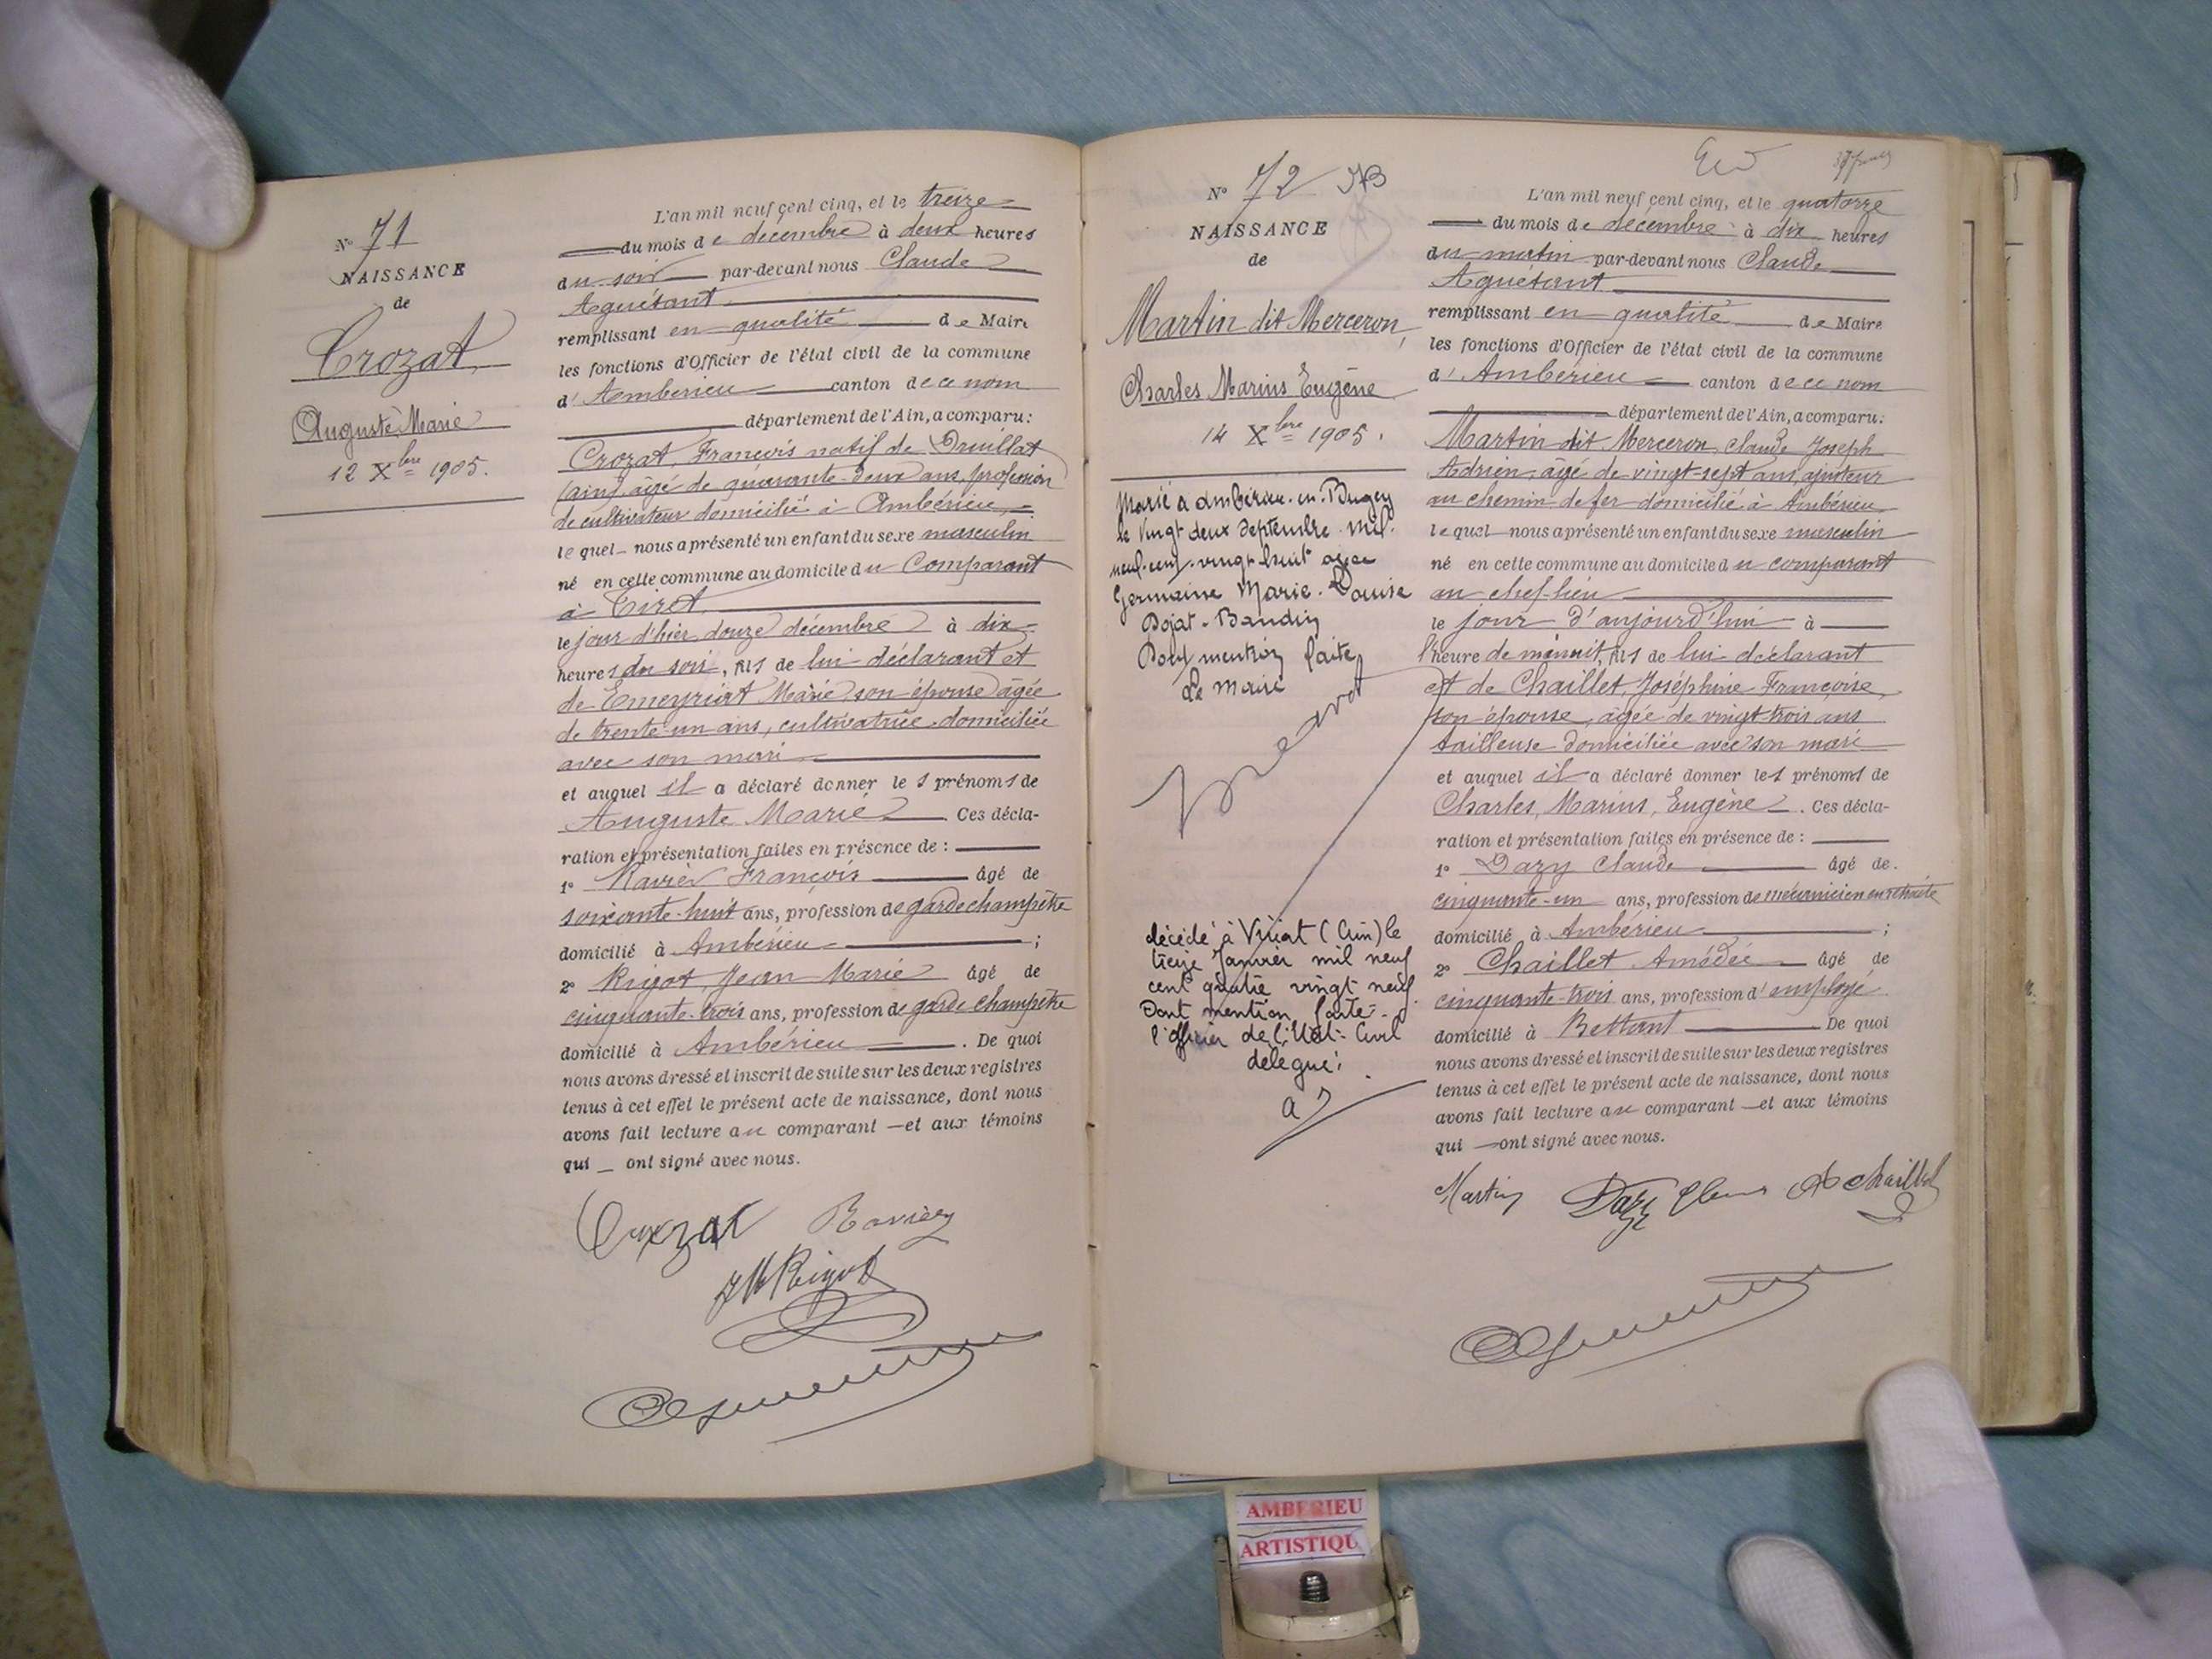 N° 71
NAISSANCE
de
Crozat
Auguste Marie
12 Xbre 1905.
L'an mil neuf cent cinq, et le treize
du mois de décembre à deux heures
du soir par-devant nous Claude
Aguétant
remplissant en qualité de Maire
les fonctions d'Officier de l'état civil de la commune
d'Ambérieu canton de ce nom
département de l'Ain, a comparu:
Crozat, François natif de Druillat
(ain) âgé de quarante-deux ans, profession
de cultivateur domicilié à Ambérieu
lequel nous a présenté un enfant du sexe masculin
né en cette commune au domicile du Comparant
à Tiret
le jour d'hier douze décembre à dix
heures du soir, fils de lui déclarant et
de Emeyriat Marie son épouse âgée
de trente-un ans, cultivatrice domiciliée
avec son mari
et auquel il a déclaré donner les prénoms de
Auguste Marie. Ces décla-
ration et présentation faites en présence de :
1° Ravier François âgé de
soixante-huit ans, profession de garde champêtre
domicilié à Ambérieu ;
2° Rigot, Jean Marie âgé de
cinquante-trois ans, profession de garde champêtre
domicilié à Ambérieu. De quoi
nous avons dressé et inscrit de suite sur les deux registres
tenus à cet effet le présent acte de naissance, dont nous
avons fait lecture au comparant et aux témoins
qui ont signé avec nous.
Crozat Ravier
JM Rigot
N° 72
NAISSANCE
de
Martin dit Merceron,
Charles Marius Eugène
14 Xbre 1905.
Marié à Ambérieu-en-Bugey
le vingt deux Septembre mil
neuf cent vingt huit avec
Germaine Marie-Louise
Dojat-Baudin
Dont mention faite
Le Maire
décédé à Viriat (Ain) le
treize Janvier mil neuf
cent quatre vingt neuf.
Dont mention faite.
l'officier de l'Etat-Civil
délégué:
L'an mil neuf cent cinq, et le quatorze
du mois de décembre à dix heures
du matin par-devant nous Claude
Aguétant
remplissant en qualité de Maire
les fonctions d'Officier de l'état civil de la commune
d'Ambérieu canton de ce nom
département de l'Ain, a comparu:
Martin dit Merceron, Claude Joseph
Adrien, âgé de vingt-sept ans, ajusteur
au chemin de fer domicilié à Ambérieu
lequel nous a présenté un enfant du sexe masculin
né en cette commune au domicile du comparant
au chef-lieu
le jour d'aujourd'hui à
l'heure de minuit, fils de lui déclarant
et de Chaillet, Joséphine Françoise,
son épouse, âgée de vingt trois ans
tailleuse domiciliée avec son mari
et auquel il a déclaré donner les prénoms de
Charles, Marius, Eugène. Ces décla-
ration et présentation faites en présence de :
1° Dazy Claude âgé de
cinquante-un ans, profession de mécanicien en retraite
domicilié à Ambérieu ;
2° Chaillet Amédée âgé de
cinquante-trois ans, profession d'employé
domicilié à Bettant De quoi
nous avons dressé et inscrit de suite sur les deux registres
tenus à cet effet le présent acte de naissance, dont nous
avons fait lecture au comparant et aux témoins
qui ont signé avec nous.
Martin Dazy A Chaillet
AMBERIEU
ARTISTIQU